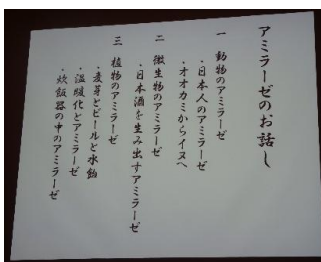 アミラーゼのお話し
一 動物のアミラーゼ
・日本人のアミラーゼ
・オオカミからイヌへ
二 微生物のアミラーゼ
・日本酒を生み出すアミラーゼ
三 植物のアミラーゼ
・麦芽とビールと水飴
・温暖化とアミラーゼ
・炊飯器の中のアミラーゼ